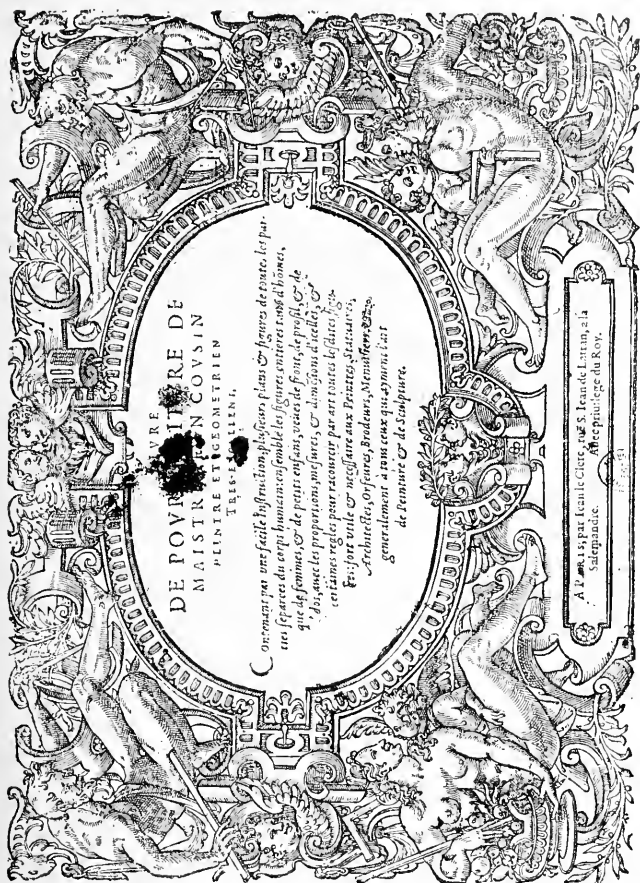 VRE
DE POVRTRAITVRE DE
MAISTRE IEAN COVSIN
PEINTRE ET GEOMETRIEN
TRES-EXCELLENT,
Contenant par une facile Instruction, plusieurs plans & figures de toutes les par-
ties separees du corps humain: ensemble les figures entieres, tant d'hommes,
que de femmes, & de petits enfans, veues de front, de profil, & de
dos, auec les proportions, mesures, & dimensions d'icelles, &
certaines regles pour racourcir par art toutes lesdites figu-
res, fort utile & necessaire aux Peintres, Statuaires,
Architectes, Orfeures, Brodeurs, Menuisiers, &
generalement à tous ceux qui ayment l'art
de Peinture & de Sculpture.
A PARIS, par Iean le Clerc, rue S. Iean de Latran, à la
Salemandre. Auec priuilege du Roy.